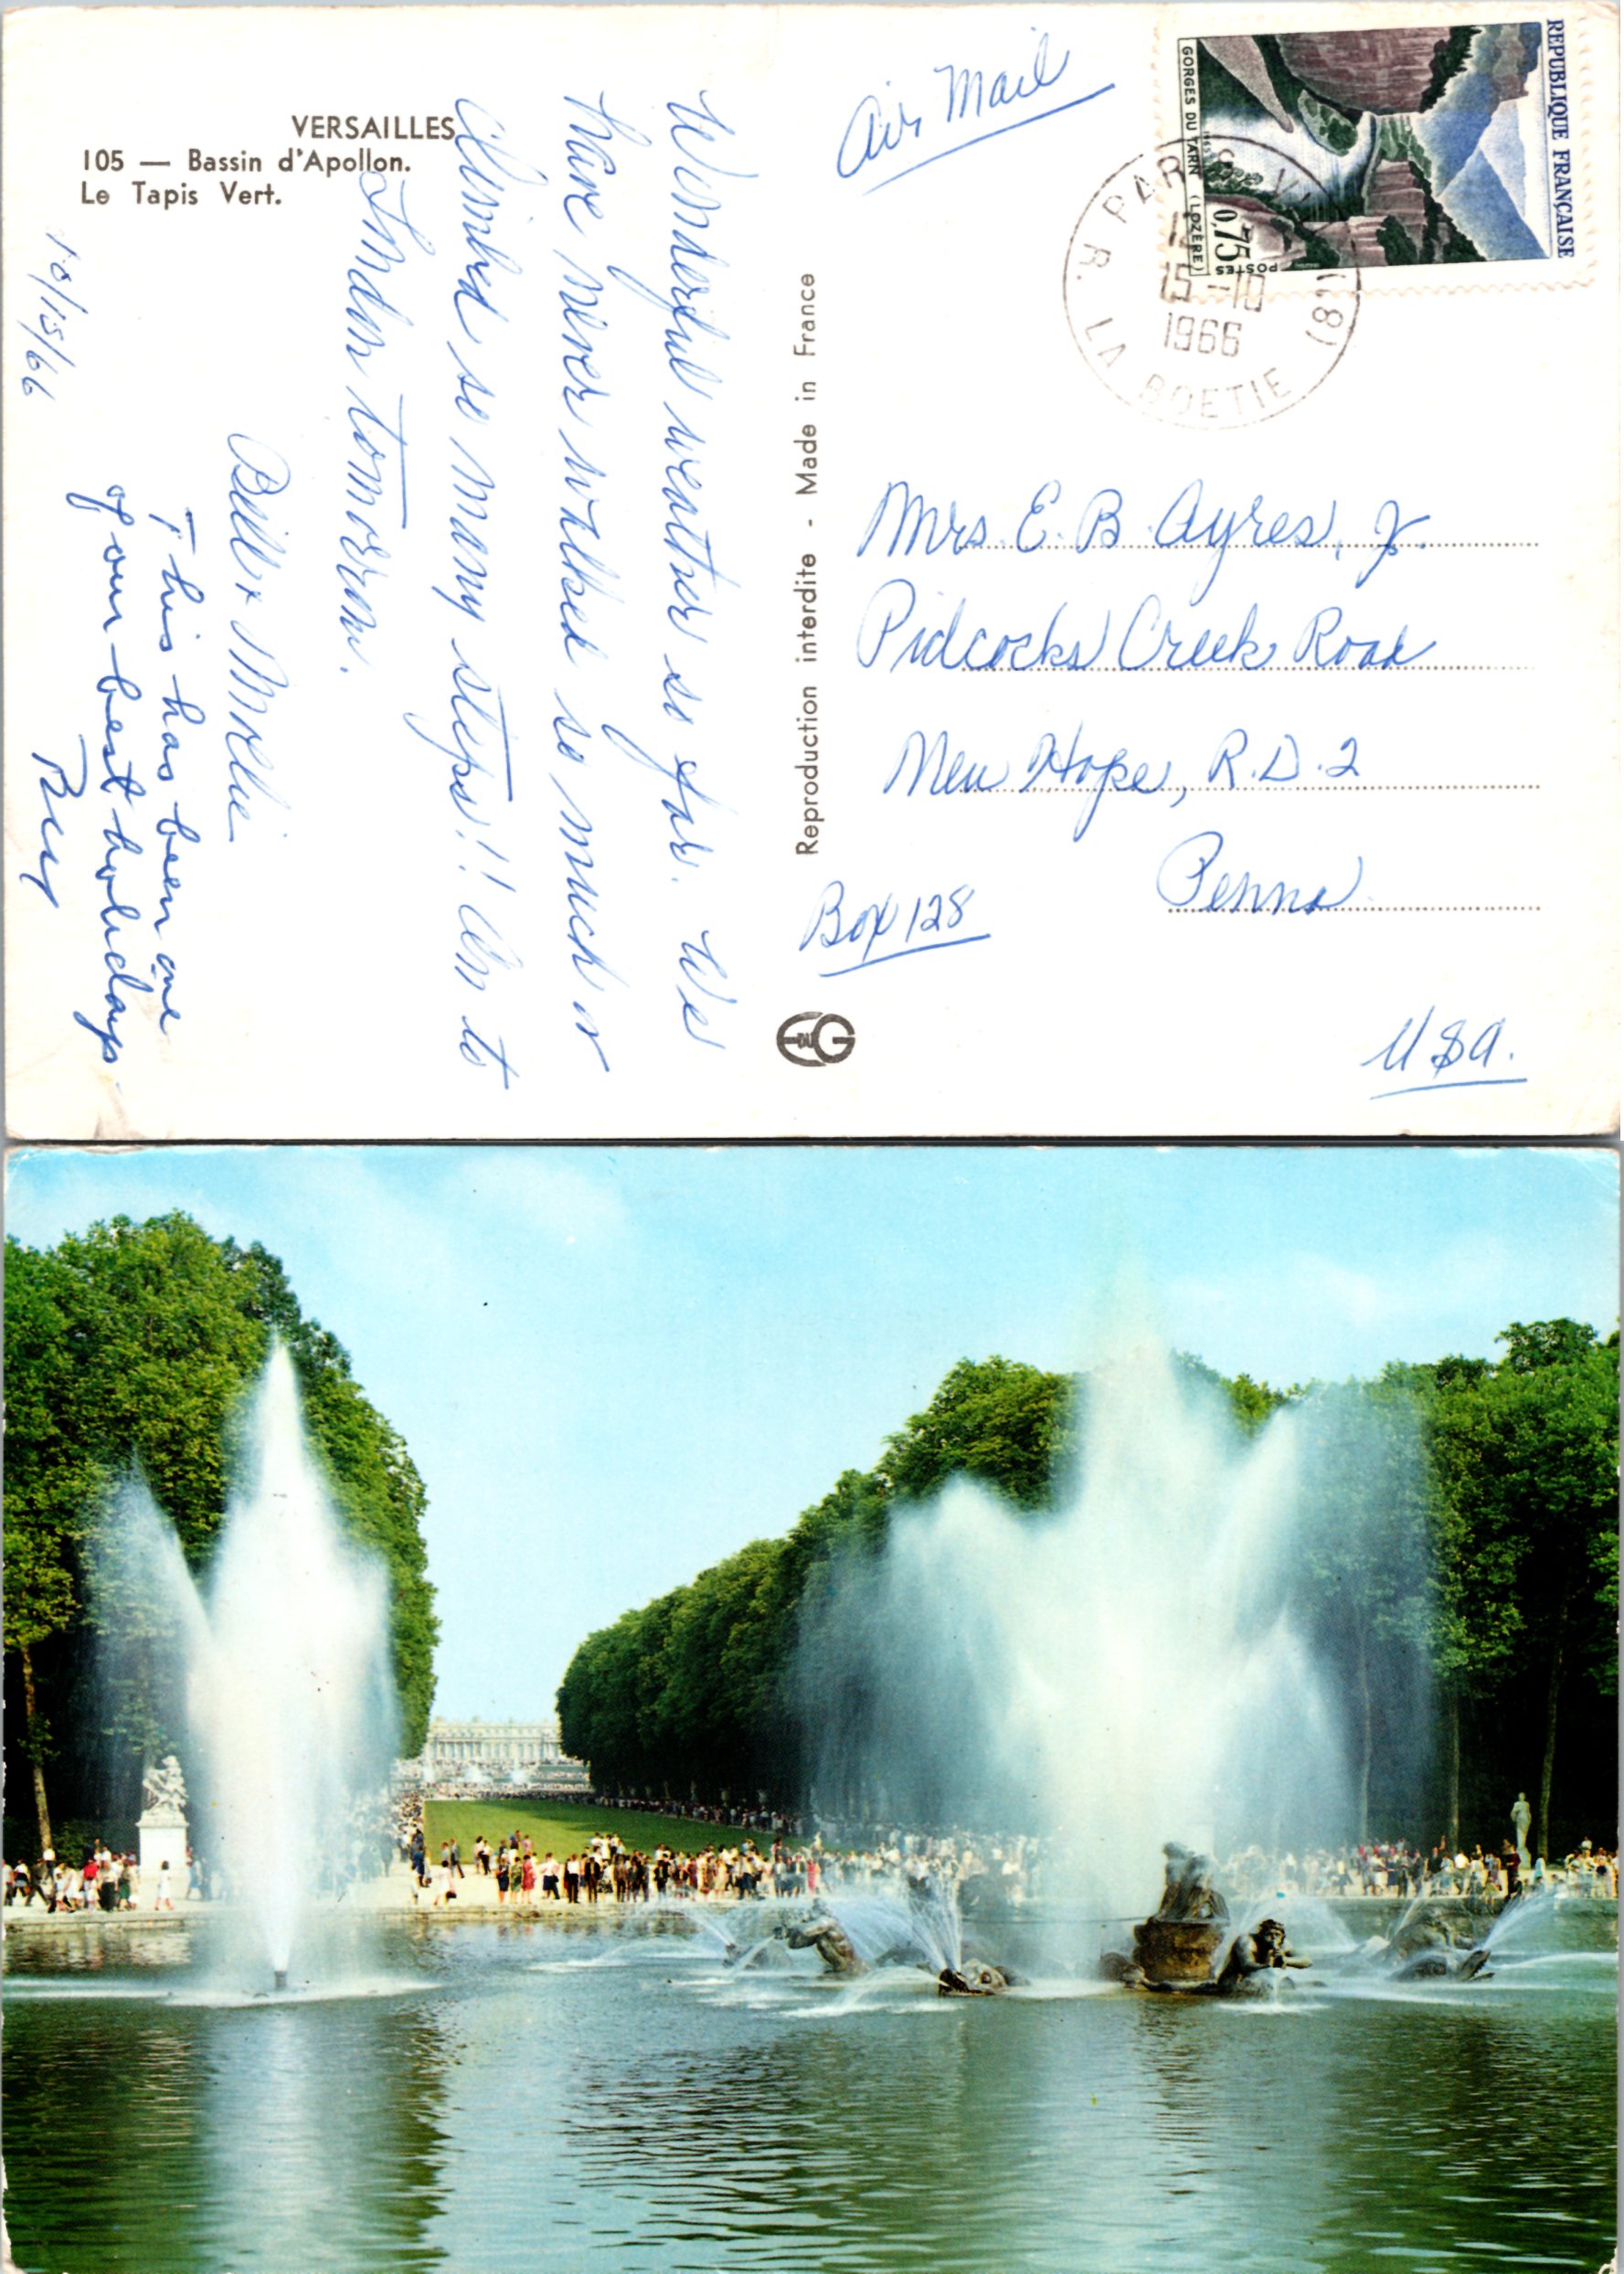 VERSAILLES
105 — Bassin d'Apollon.
Le Tapis Vert.
10/15/66
Wonderful weather so far. We
have never walked so much or
climbed so many steps!! On to
London tomorrow.
Bill & Mollie
This has been one
of our best holidays.
Reproduction interdite - Made in France
EG
Air Mail
REPUBLIQUE FRANÇAISE
GORGES DU TARN (LOZÈRE)
0,75
POSTES
PARIS VIII (8e)
15-10
1966
R. LA BOETIE
Mrs. E. B. Ayres, Jr.
Pidcocks Creek Road
New Hope, R.D. 2
Penna
Box 128
USA.